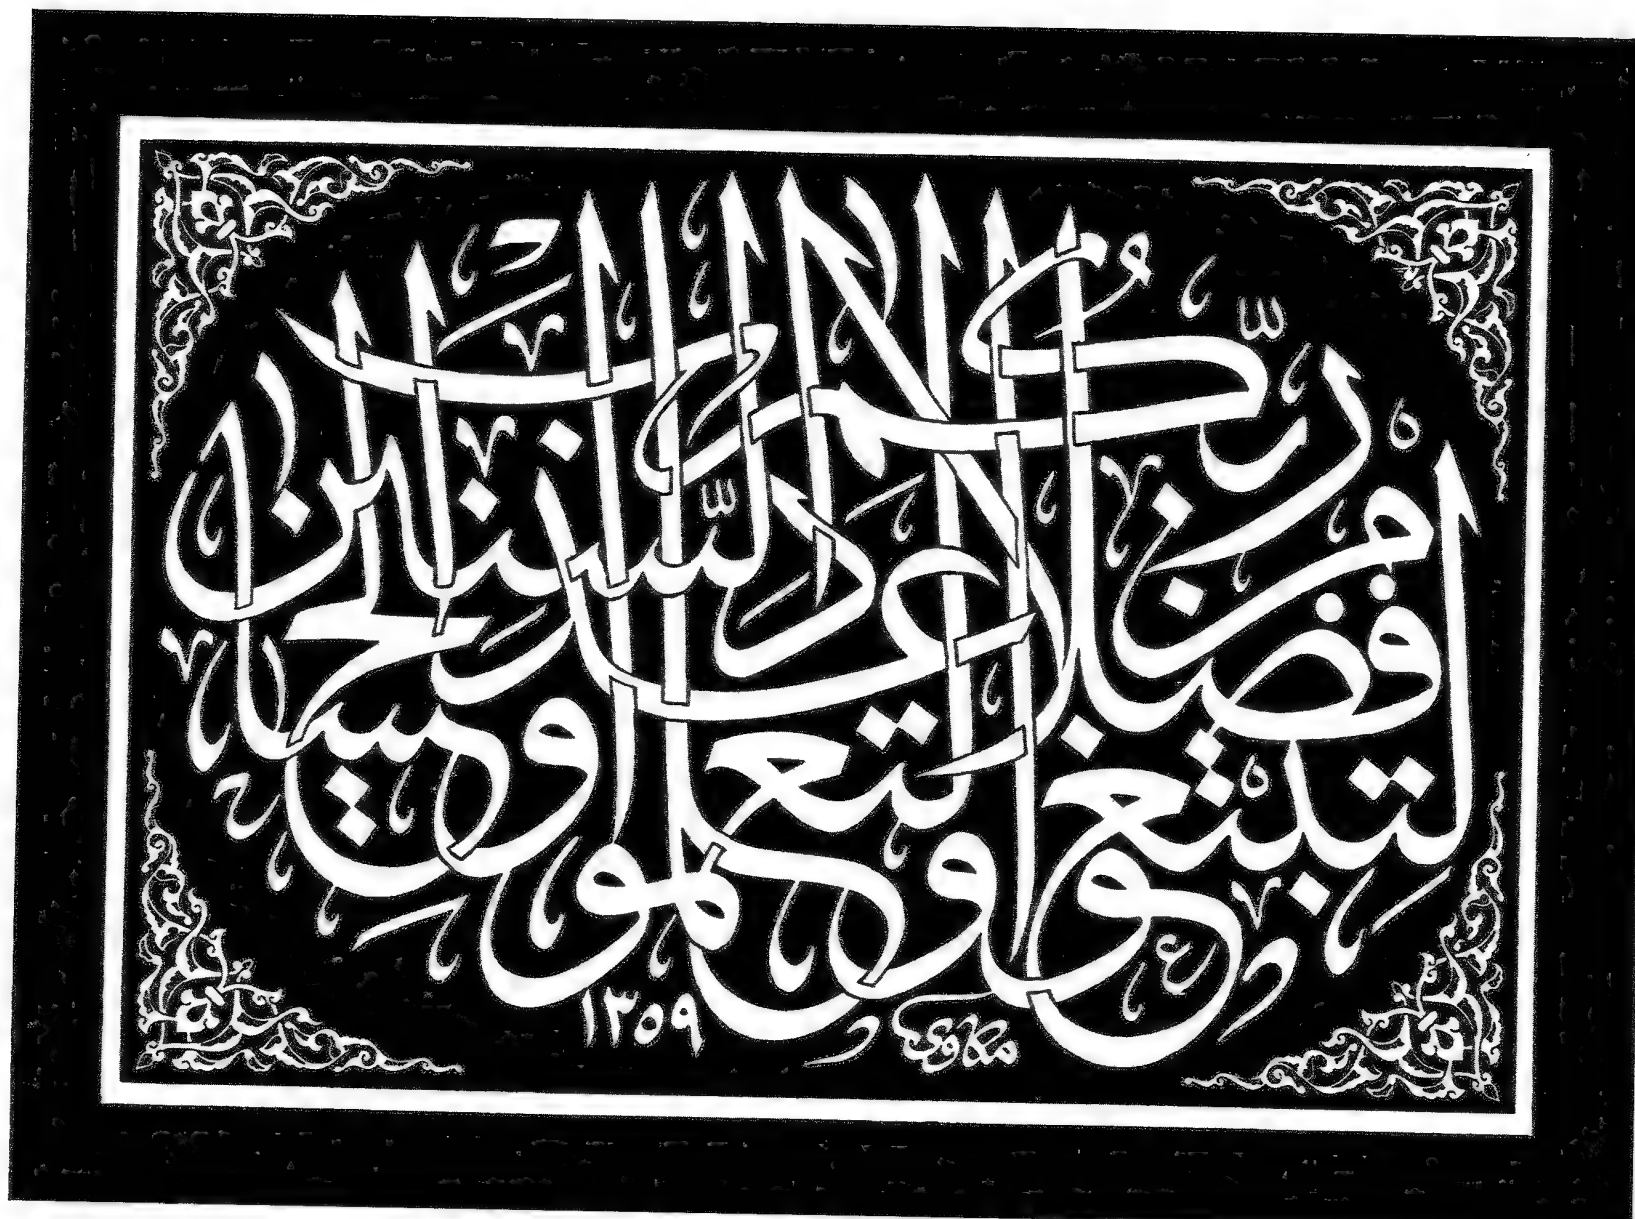 لِتَبْتَغُوا فَضْلًا مِنْ رَبِّكُمْ وَلِتَعْلَمُوا عَدَدَ السِّنِينَ وَالْحِسَابَ
مكاوي
١٣٥٩